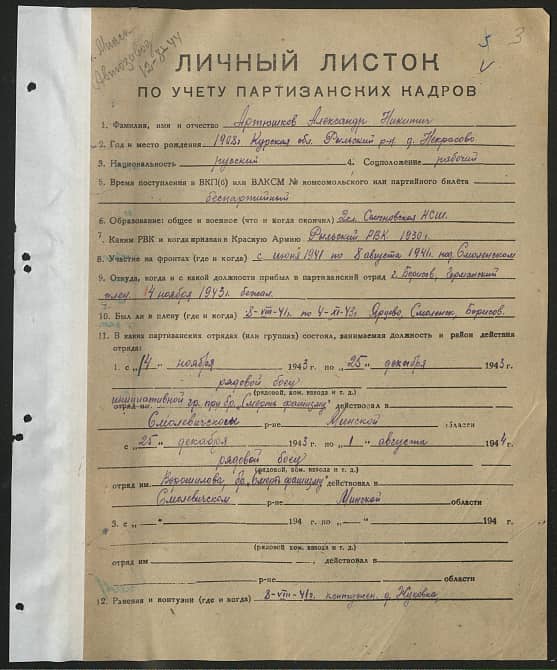 г. Минск
Автозавод
12-VIII-44
5
3
ЛИЧНЫЙ ЛИСТОК
ПО УЧЕТУ ПАРТИЗАНСКИХ КАДРОВ
1. Фамилия, имя и отчество Артюшков Александр Никитич
2. Год и место рождения 1908г. Курская обл. Рыльский р-н д. Некрасово
3. Национальность русский 4. Соцположение рабочий
5. Время поступления в ВКП(б) или ВЛКСМ № комсомольского или партийного билета
беспартийный
6. Образование: общее и военное (что и когда окончил) 2кл. НСШ.
7. Каким РВК и когда призван в Красную Армию Рыльский РВК 1930г.
8. Участие на фронтах (где и когда) с июня 1941 по 8 августа 1941г. под Смоленском
9. Откуда, когда и с какой должности прибыл в партизанский отряд г. Борисов, Германский
плен. 14 ноября 1943г. бежал.
10. Был ли в плену (где и когда) 8-VIII-41г. по 4-XI-43г. Ярцево, Смоленск, Борисов.
11. В каких партизанских отрядах (или группах) состоял, занимаемая должность и район действия
отряда:
1. с „14 ноября 1943 г. по „25 декабря 1943 г.
рядовой боец
(рядовой, ком. взвода и т. д.)
инициативной гр. при бр. „Смерть фашизму"
отряд им. действовал в
Смолевичском р-не Минской области
с „25 декабря 1943 г. по „1 августа 1944 г.
рядовой боец
(рядовой, ком. взвода и т. д.)
отряд им. Ворошилова бр. „Смерть фашизму" действовал в
Смолевичском Минской области
3. с „ — " 194 г. по „ — " 194 г.
(рядовой, ком. взвода и т. д.)
отряд им , действовал в
р-не области
12. Ранения и контузии (где и когда) 8-VIII-41г. контужен. д. Жуковка